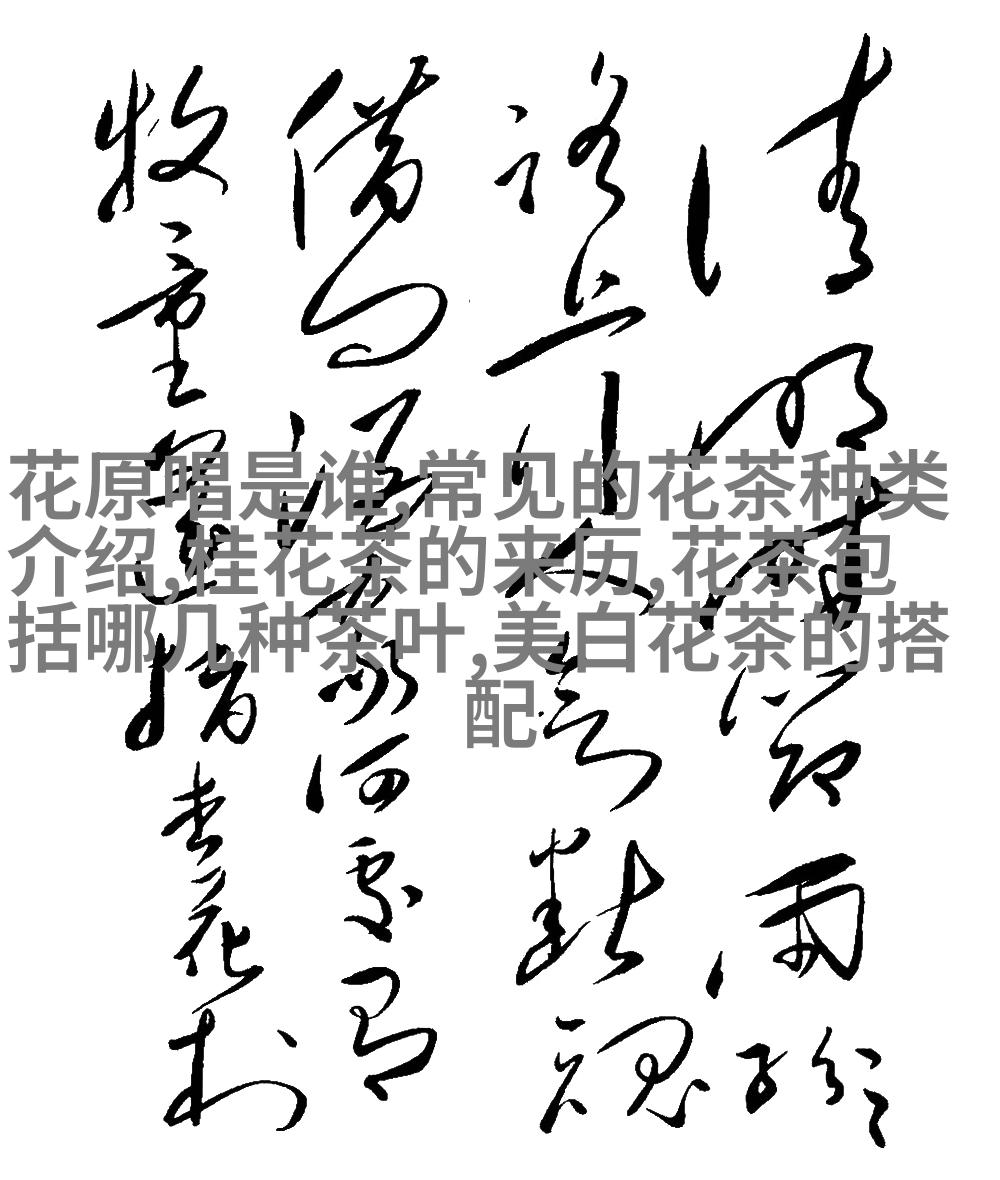 花原唱是谁,常见的花茶种类
介绍,桂花茶的来历,花茶包
括哪几种茶叶,美白花茶的搭
配
清明時節雨紛紛
路上行人欲斷魂
借问酒家何處有
牧童遥指杏花村